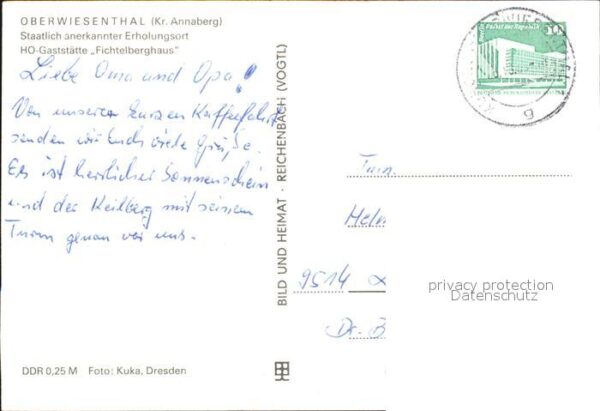 OBERWIESENTHAL (Kr. Annaberg)
Staatlich anerkannter Erholungsort
HO-Gaststätte „Fichtelberghaus"
Liebe Oma und Opa!
Von unserer kurzen Kaffeefahrt
senden wir Euch viele Grüße.
Es ist herrlicher Sonnenschein
und der Keilberg mit seinem
Turm genau vor uns.
DDR 0,25 M Foto: Kuka, Dresden
BILD UND HEIMAT · REICHENBACH (VOGTL)
Palast der Republik
Fam.
9514
Dr. B
privacy protection
Datenschutz